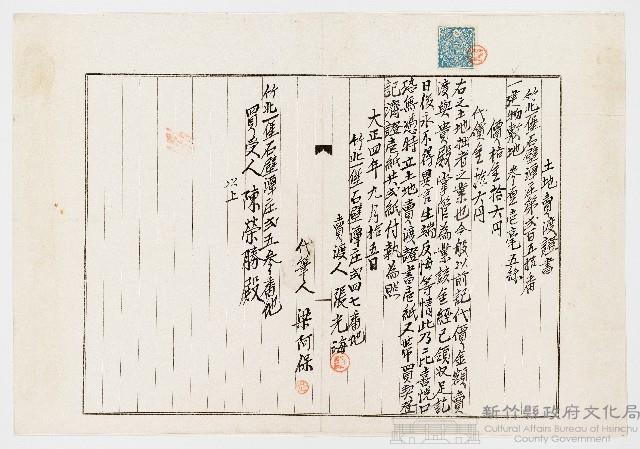 土地賣渡證書
竹北一堡石壁潭庄第弍百五拾番
一建物敷地 参厘壱毫五糸
價格金拾六円
代價金拾六円
右之土地拙者之業也今般以前記代價金額賣
渡與貴殿掌管為業該金經已領收足訖
日後永不得異言生端反悔等情此乃二比喜悦口
恐無憑特立土地賣渡證書壱紙又帶買契登
記濟證壱紙共弍紙付執為照
大正四年九月拾五日
竹北一堡石壁潭庄弍四七番地
賣渡人 張光海
代筆人 梁阿保
竹北一堡石壁潭庄弍五参番地
買受人 陳榮勝殿
以上
新竹縣政府文化局
Cultural Affairs Bureau of Hsinchu
County Government